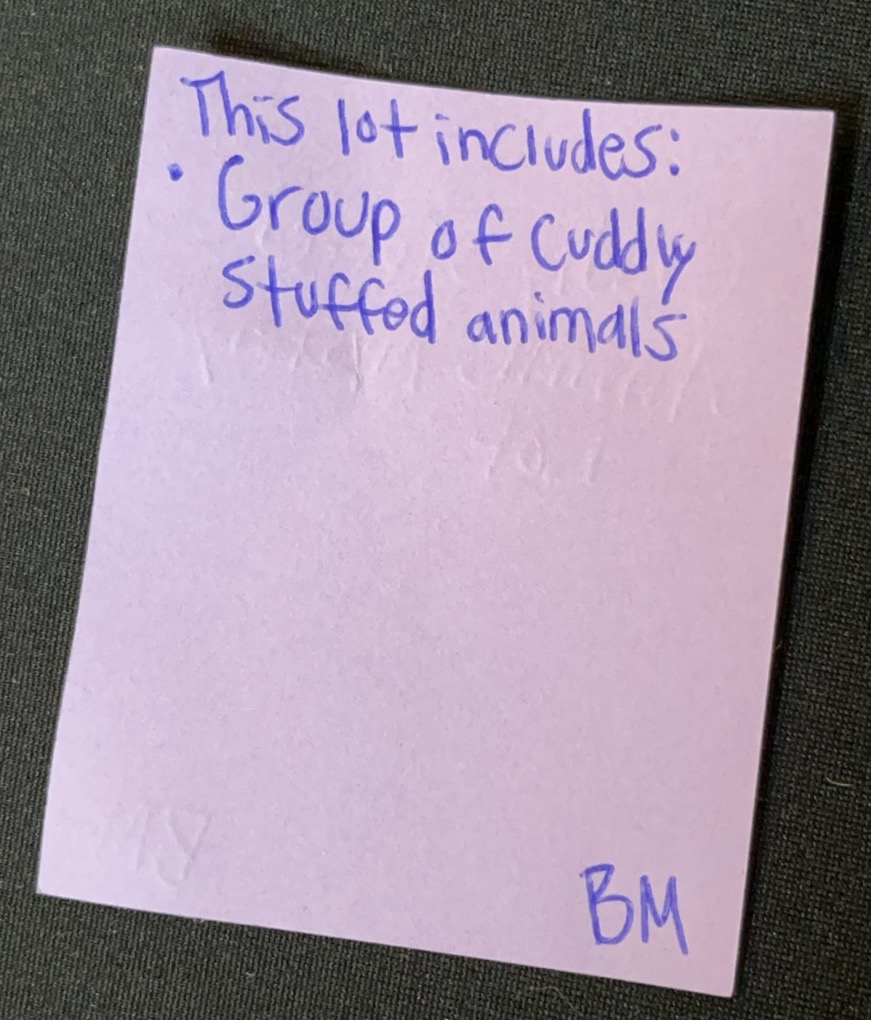 This lot includes:
• Group of Cuddly
Stuffed animals
BM